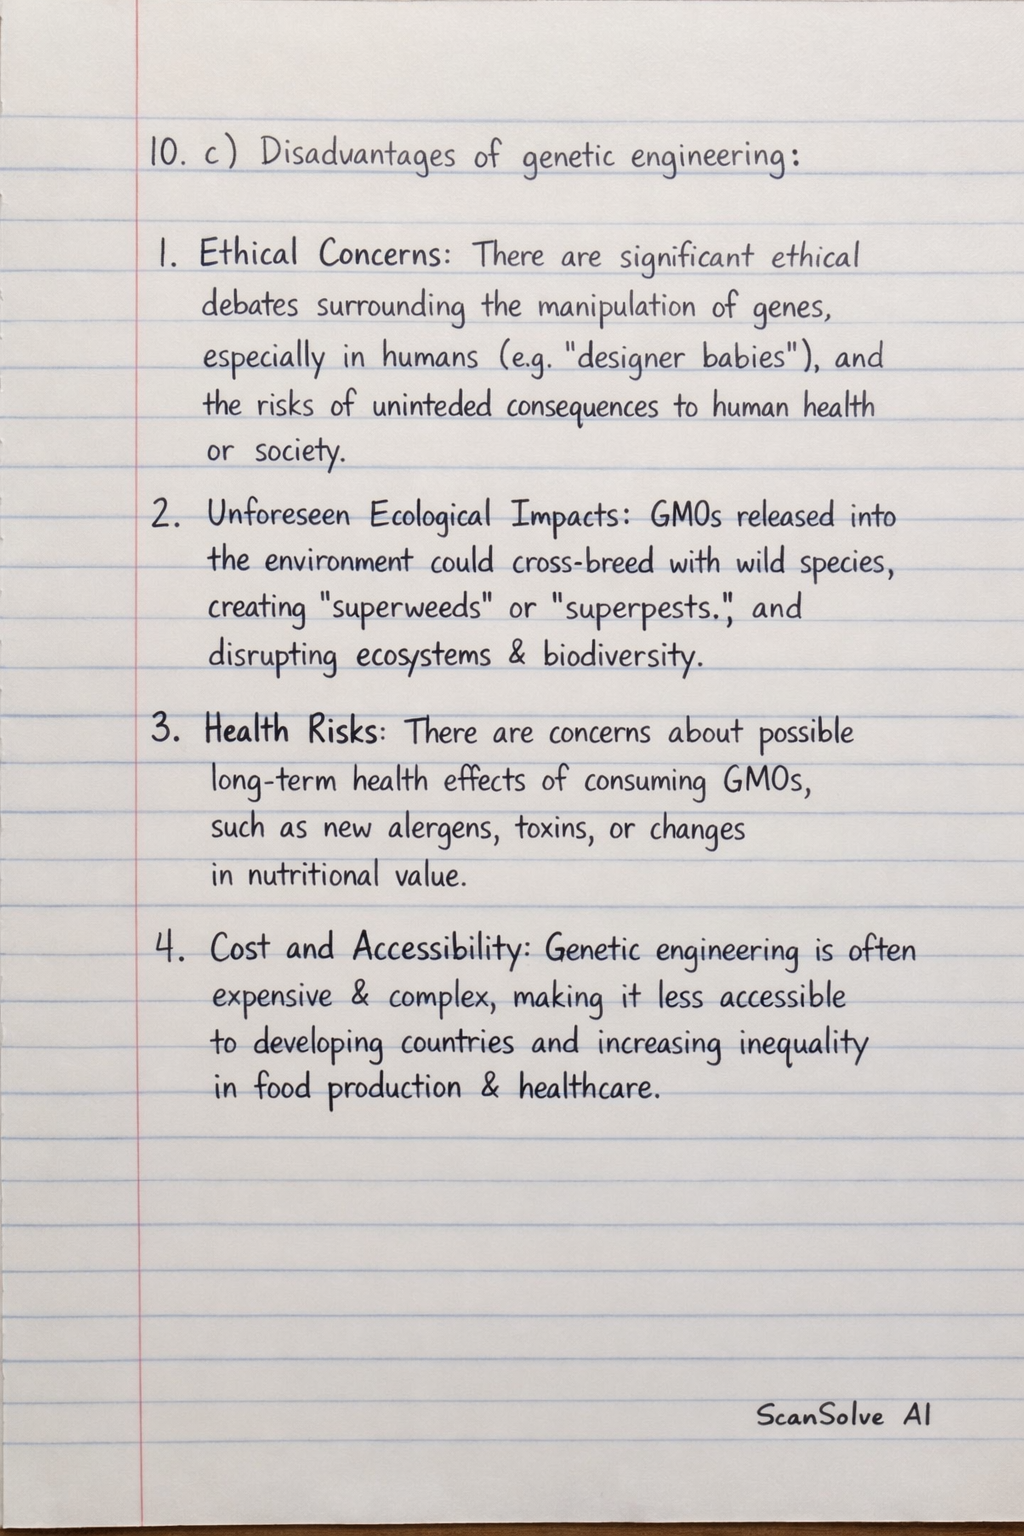 10. c) Disadvantages of genetic engineering:
1. Ethical Concerns: There are significant ethical
debates surrounding the manipulation of genes,
especially in humans (e.g. "designer babies"), and
the risks of uninteded consequences to human health
or society.
2. Unforeseen Ecological Impacts: GMOs released into
the environment could cross-breed with wild species,
creating "superweeds" or "superpests.", and
disrupting ecosystems & biodiversity.
3. Health Risks: There are concerns about possible
long-term health effects of consuming GMOs,
such as new alergens, toxins, or changes
in nutritional value.
4. Cost and Accessibility: Genetic engineering is often
expensive & complex, making it less accessible
to developing countries and increasing inequality
in food production & healthcare.
ScanSolve AI